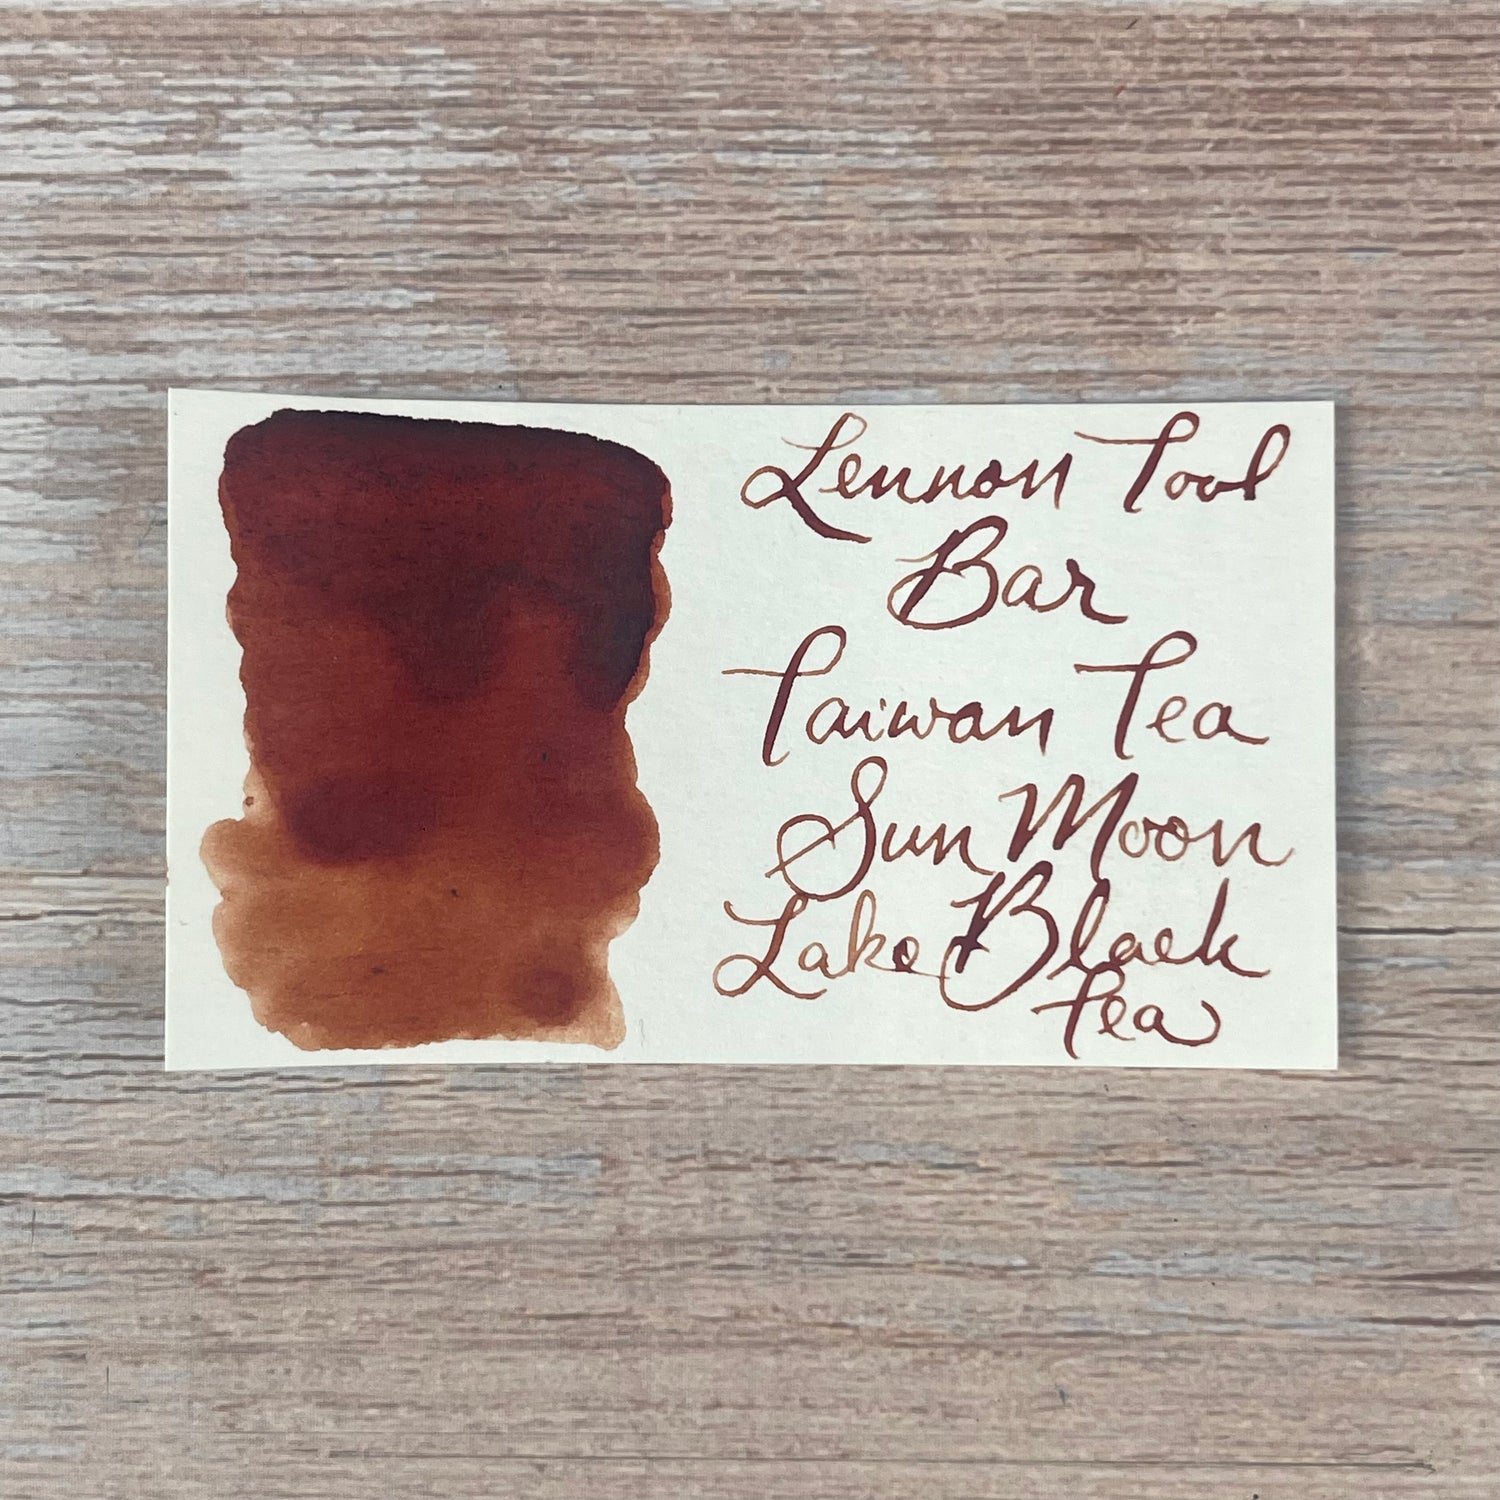 Lennon Tool
Bar
Taiwan Tea
Sun Moon
Lake Black
Tea